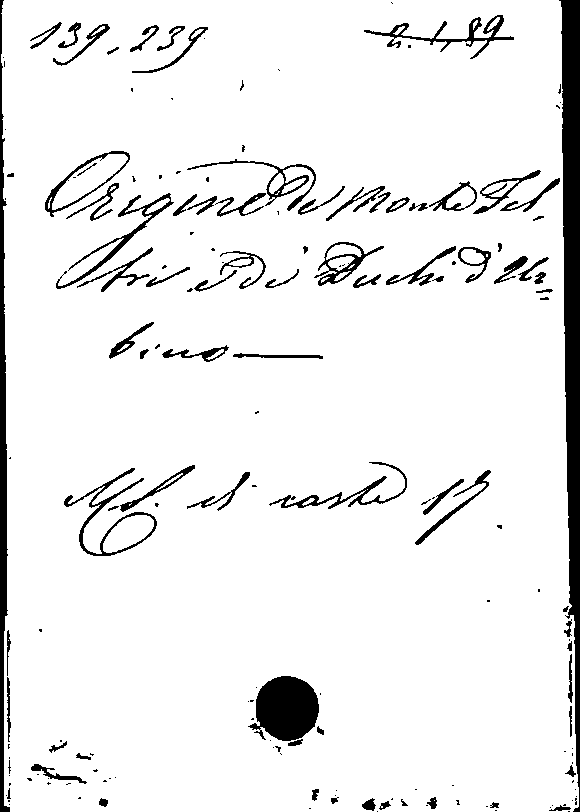 139.239 2. 1,89
Origine de Monte Fel-
tri e de' Duchi d'Ur=
bino
MS. di carte 17.